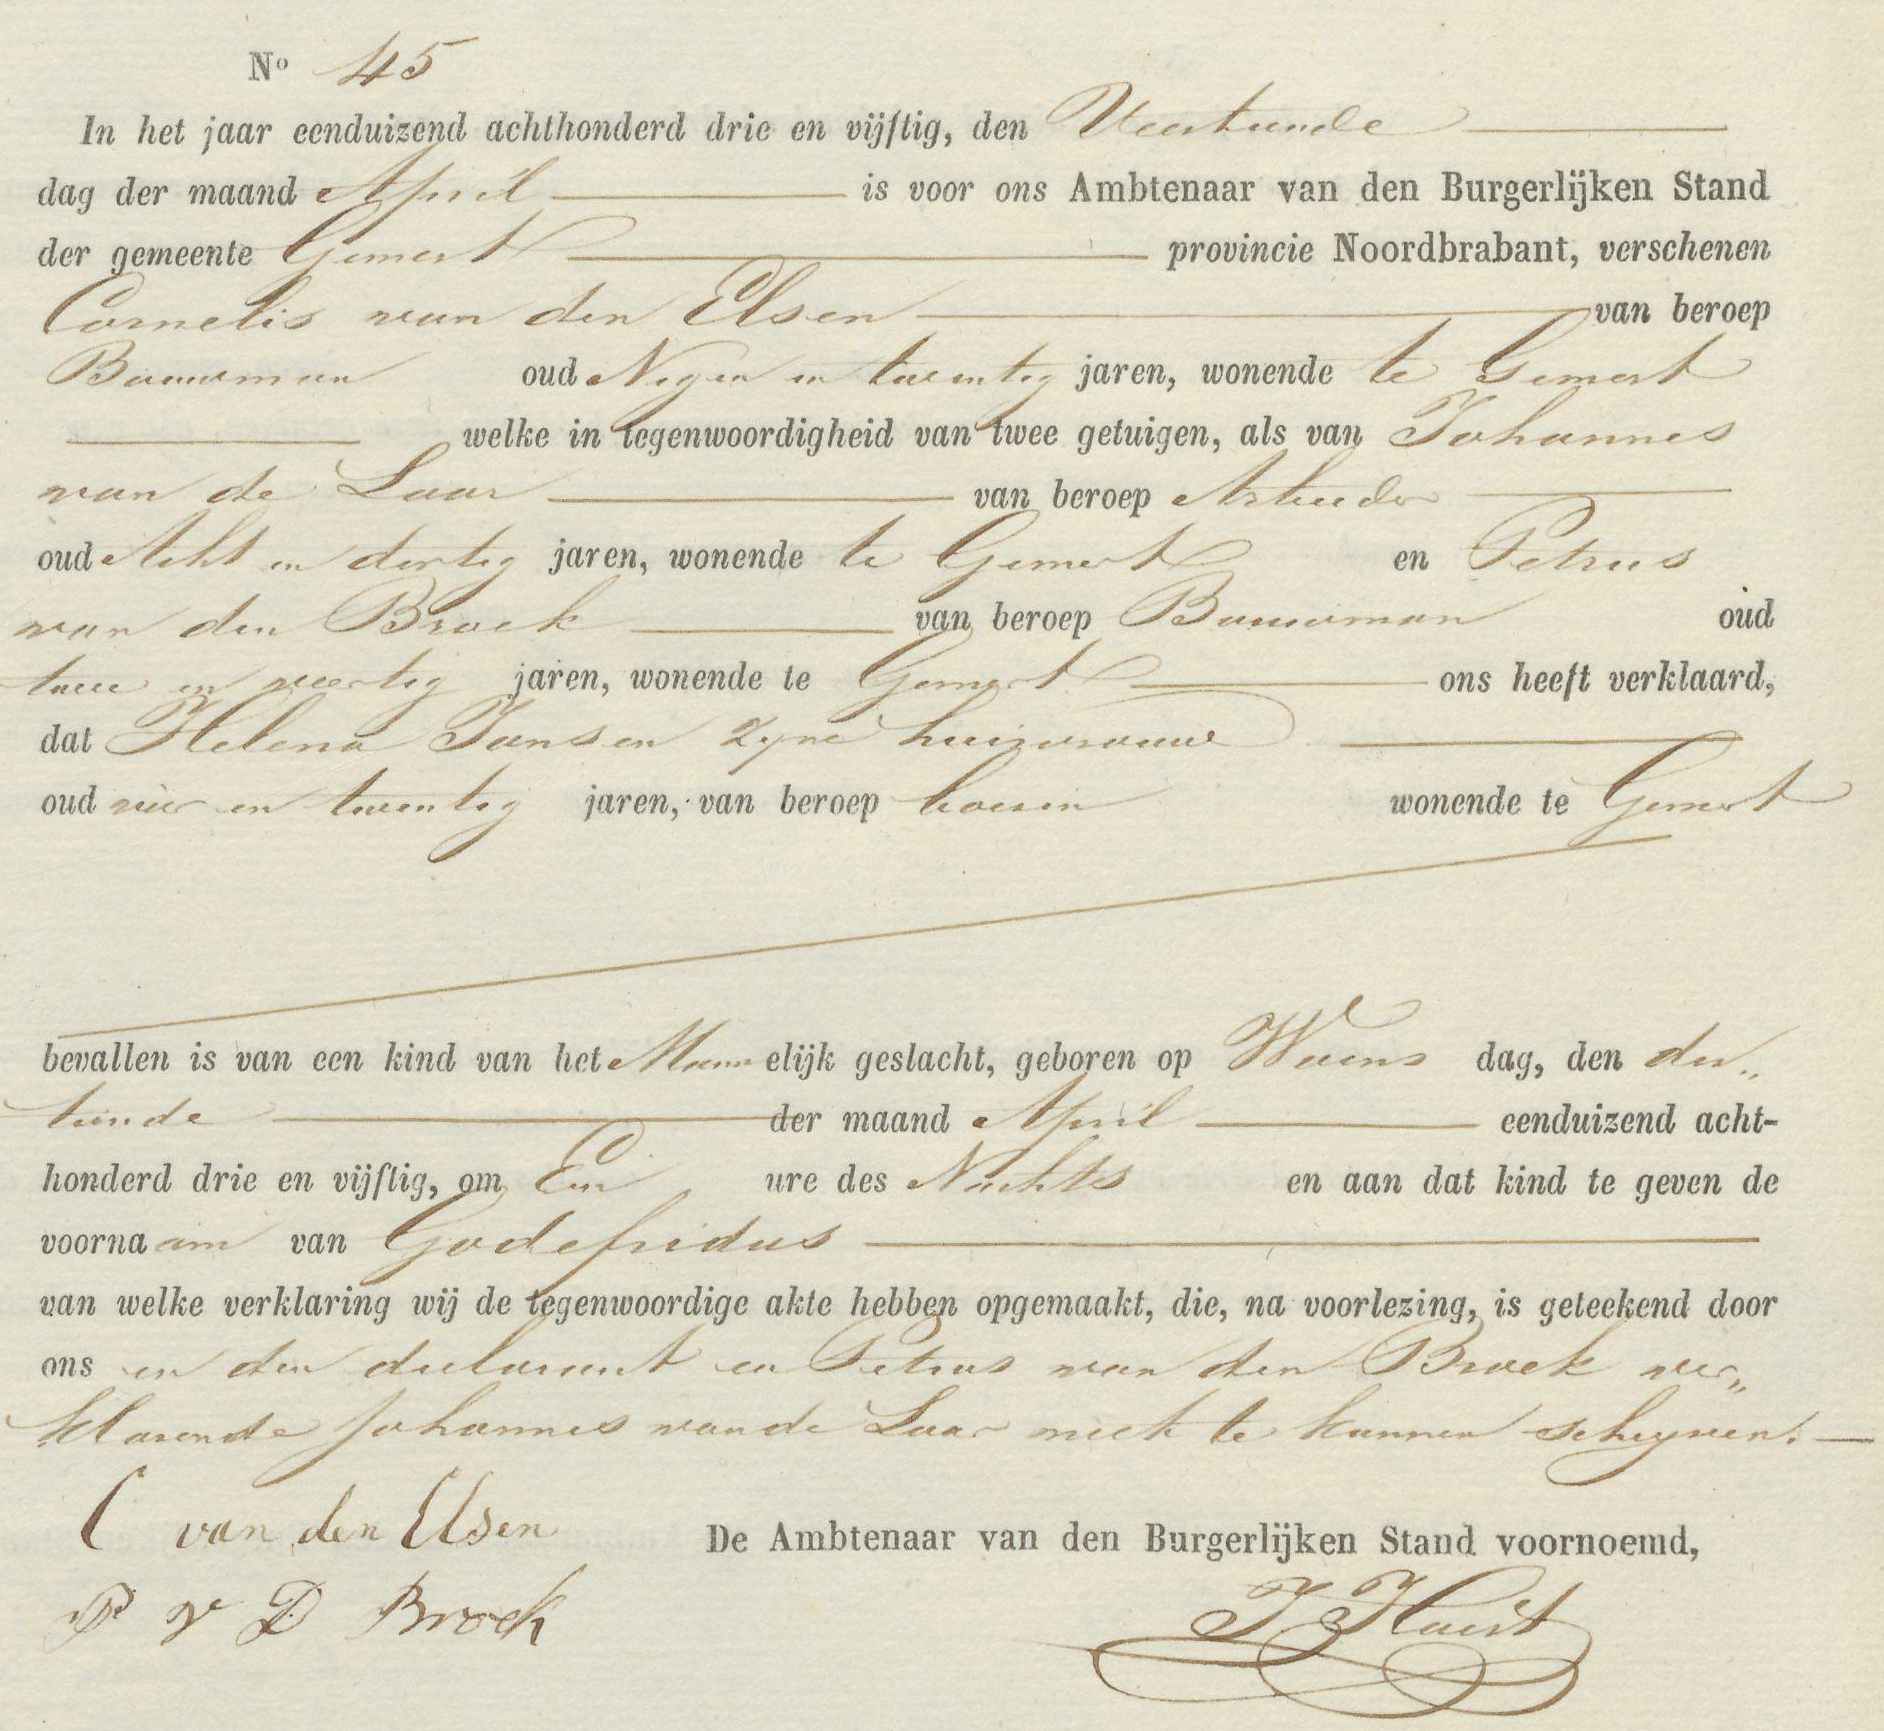 No 45
In het jaar eenduizend achthonderd drie en vijftig, den Veertiende
dag der maand April is voor ons Ambtenaar van den Burgerlijken Stand
der gemeente Gemert provincie Noordbrabant, verschenen
Cornelis van den Elsen van beroep
Bouwman oud Negen en twentig jaren, wonende te Gemert
welke in tegenwoordigheid van twee getuigen, als van Johannes
van de Laar van beroep Arbeider
oud Acht en dertig jaren, wonende te Gemert en Petrus
van den Broek van beroep Bouwman oud
twee en veertig jaren, wonende te Gemert ons heeft verklaard,
dat Helena Jansen zyne huisvrouw
oud vier en twentig jaren, van beroep boerin wonende te Gemert
bevallen is van een kind van het Mannelijk geslacht, geboren op Woens dag, den der„
tiende der maand April eenduizend acht-
honderd drie en vijftig, om Een ure des Nachts en aan dat kind te geven de
voornaam van Godefridus
van welke verklaring wij de tegenwoordige akte hebben opgemaakt, die, na voorlezing, is geteekend door
ons en den declarant en Petrus van den Broek ver„
klarende Johannes van de Laar niet te kunnen schryven.
C van den Elsen
De Ambtenaar van den Burgerlijken Stand voornoemd,
P v D Broek